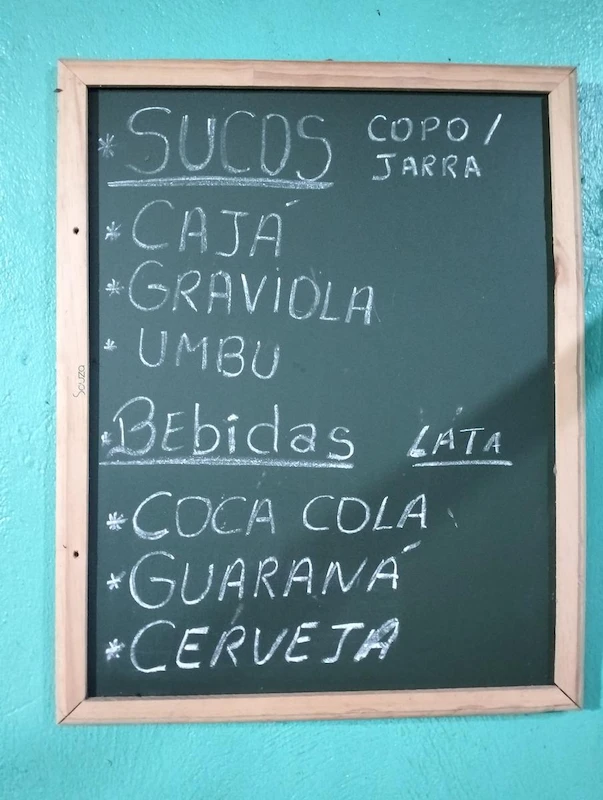 * SUCOS COPO / JARRA
* CAJÁ
* GRAVIOLA
* UMBU
* Bebidas LATA
* COCA COLA
* GUARANÁ
* CERVEJA
Souza